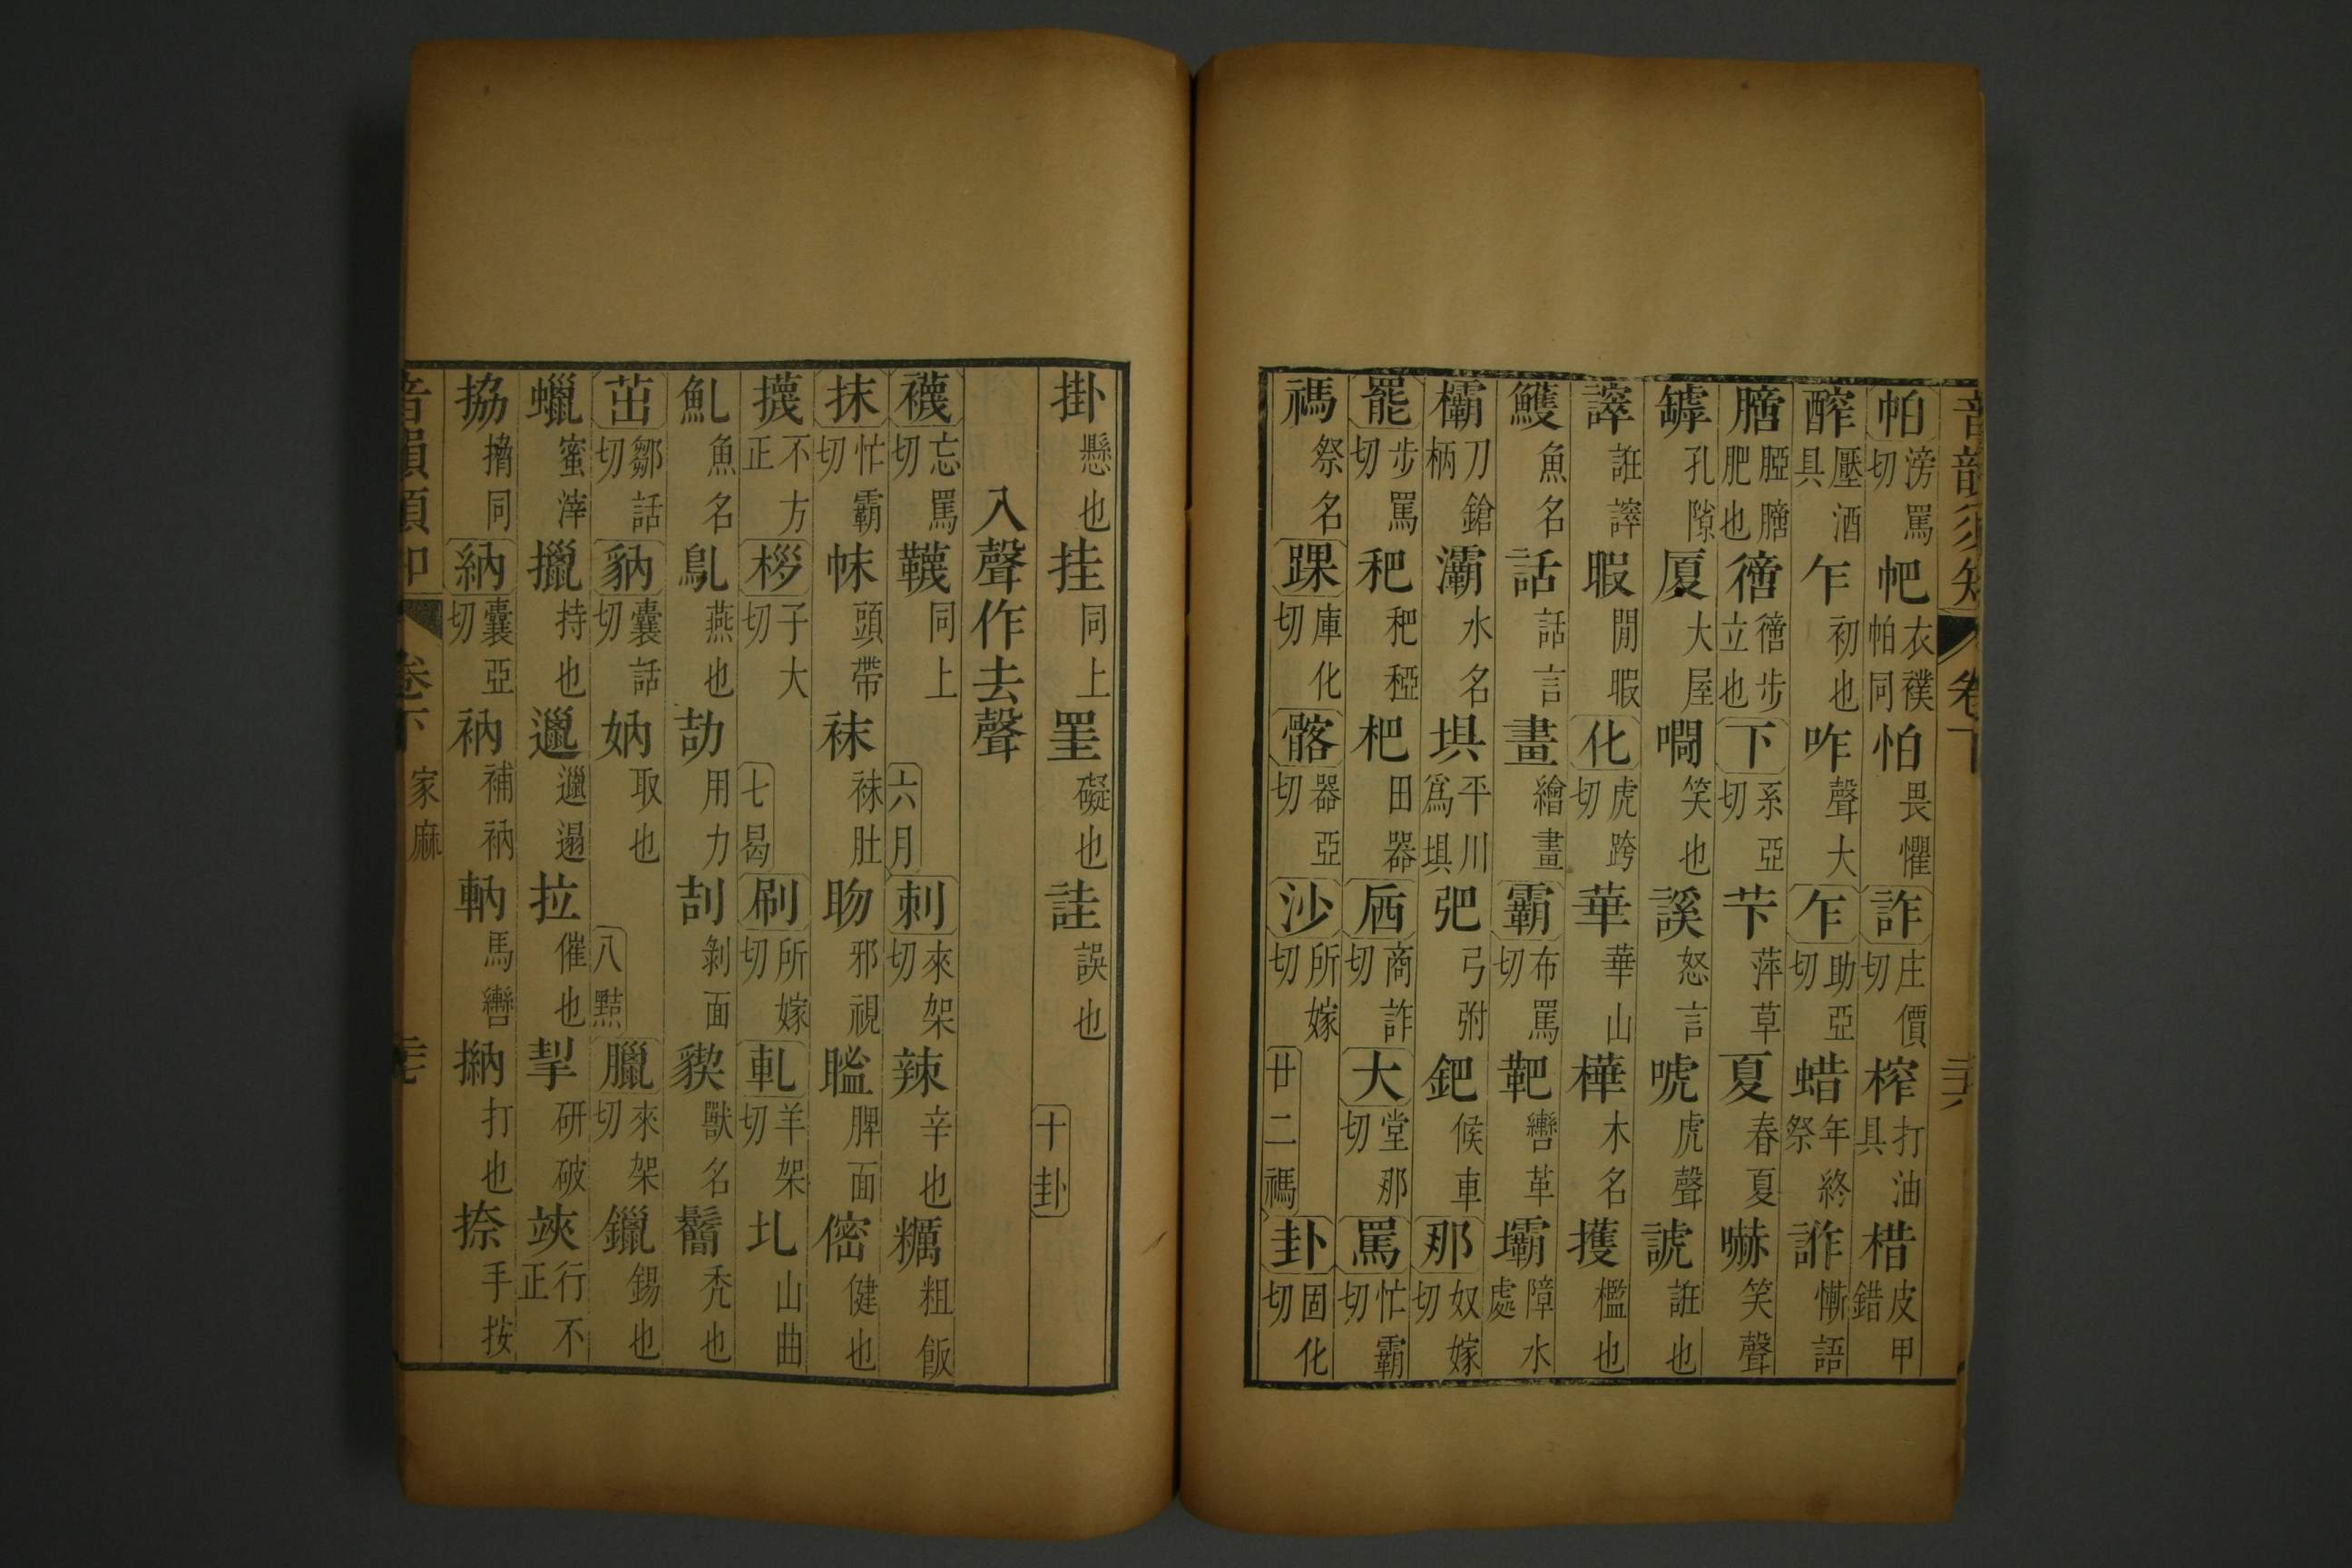 音韻須知 卷下
帕滂罵切帊衣襆帕同怕畏懼詐庄價切榨打油具棤皮甲錯
醡壓酒具乍初也咋聲大乍助亞切蜡年終祭詐慚語
膪脛膪肥也徣徣步立也下系亞切芐萍草夏春夏嚇笑聲
罅孔隙厦大屋㗿笑也謑怒言唬虎聲諕誑也
誻誑誻暇閒暇化虎跨切華華山樺木名擭檻也
鱯魚名話話言畫繪畫霸布罵切靶轡革壩障水處
欛刀鎗柄灞水名垻平川爲垻弝弓弣鈀候車那奴嫁切
罷步罵切䎬䎬稏杷田器㕐商詐切大堂那切罵忙霸切
禡祭名踝庫化切髂器亞切沙所嫁切廿二禡卦固化切
掛懸也挂同上罣礙也詿誤也十卦
入聲作去聲
襪忘罵切韈同上六月剌來架切辣辛也糲粗飯
抹忙霸切帓頭帶袜袜肚眆邪視䁅脾面傛健也
攁不方正桚子大切七曷刷所嫁切軋羊架切圠山曲
魝魚名鳦燕也劼用力刮剝面貏獸名鬝禿也
茁鄒話切豽囊話切妠取也八黠臘來架切鑞錫也
蠟蜜滓擸持也邋邋遢拉催也㧱研破竦行不正
拹搚同納囊亞切衲補衲軜馬轡㨥打也捺手按
音韻須知 卷下 家麻 二七